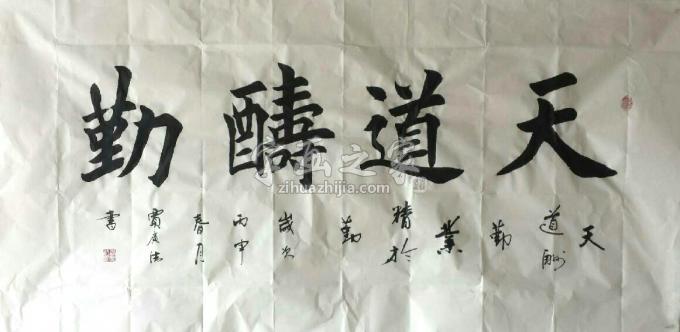 天道醻勤
天
道酬
勤
業
精於
勤
歲次
丙申
春月
書
字画之家
zihuazhijia.com